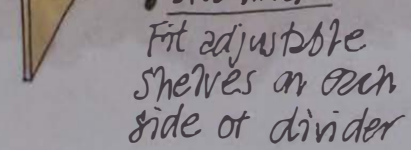 Fit adjustable
shelves on each
side of divider